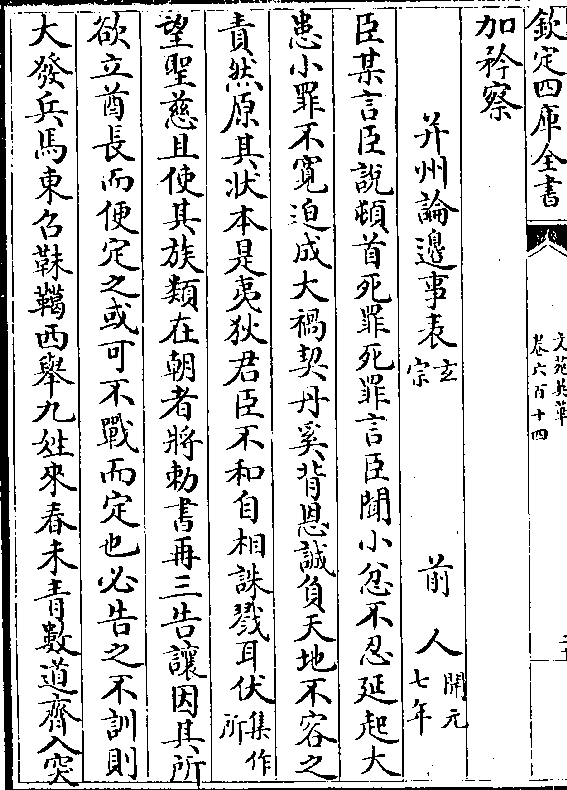 欽定四庫全書
文苑英華
卷六百十四
加矜察
并州論邊事表玄宗 前人開元七年
臣某言臣說頓首死罪死罪言臣聞小忿不忍延起大
患小罪不寛迫成大禍契丹奚背恩誠負天地不容之
責然原其狀本是夷狄君臣不和自相誅戮耳伏集作所
望聖慈且使其族類在朝者將勅書再三告讓因其所
欲立酋長而便定之或可不戰而定也必告之不訓則
大發兵馬東召靺鞨西舉九姓來春未青數道齊入突